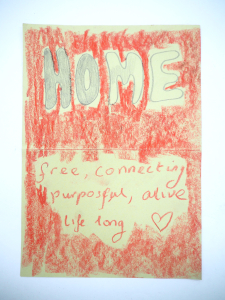 HOME
free, connecting
purposful, alive
life long